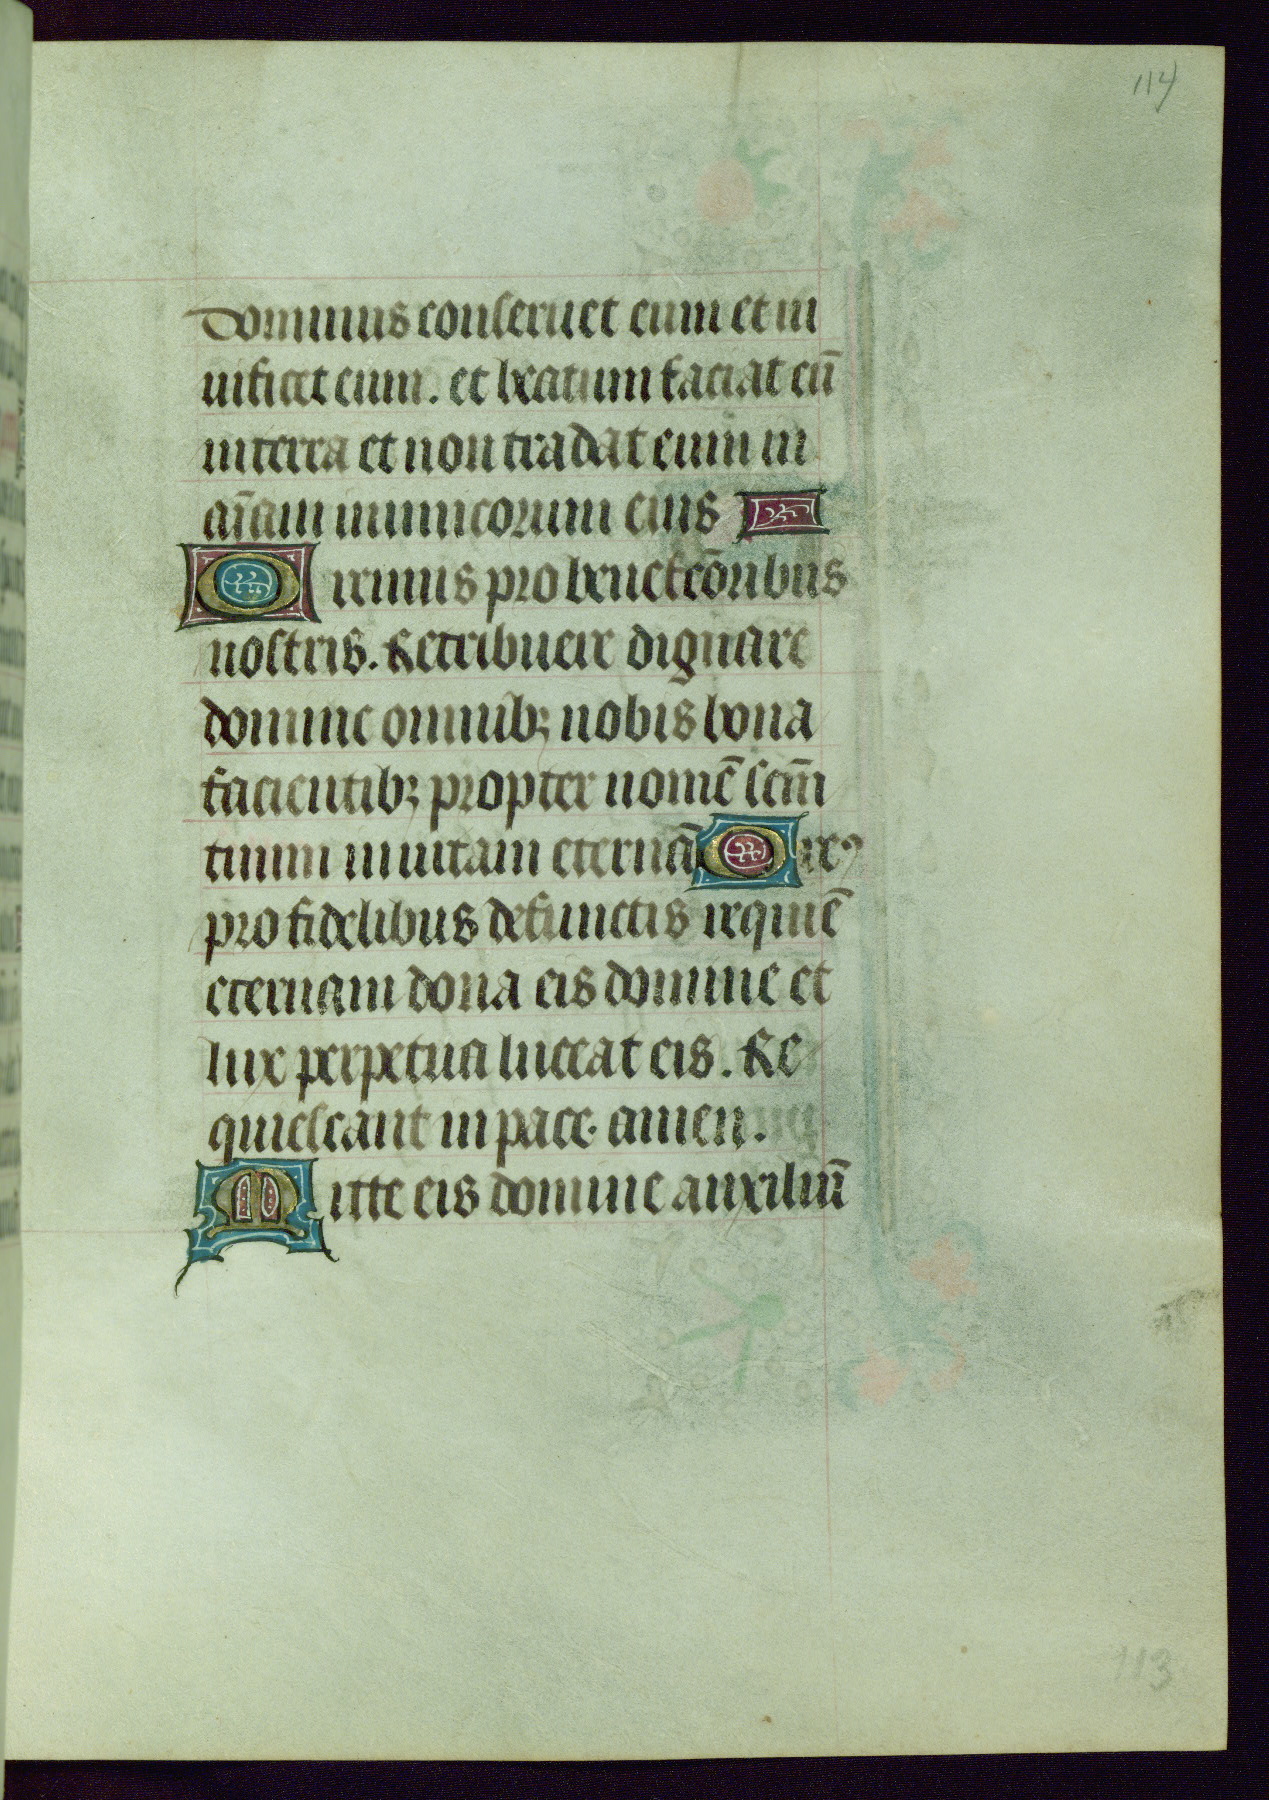 114
Dominus conseruet eum et ui
uificet eum. et beatum faciat eū
in terra et non tradat eum in
aīam inimicorum eius
Oremus pro benefcōribus
nostris. Retribuere dignare
domine omnibꝫ nobis bona
facientibꝫ propter nomē scm̄
tuum in uitam eternā Oremꝰ
pro fidelibus defunctis requiē
eternam dona eis domine et
lux perpetua luceat eis. Re
quiescant in pace. amen.
Mitte eis domine auxiliū
113